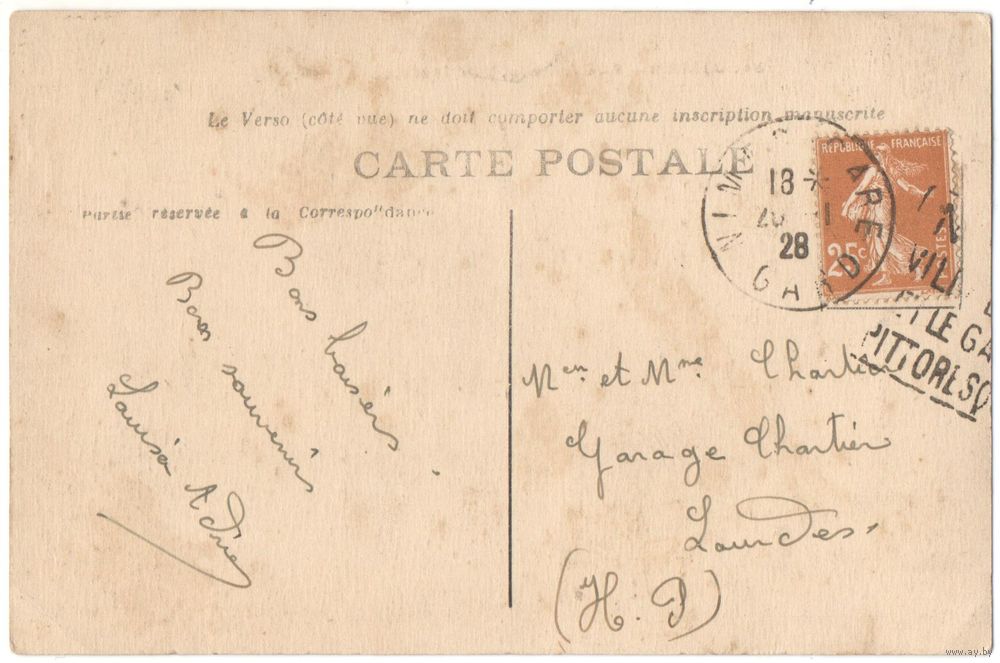 Le Verso (côté vue) ne doit comporter aucune inscription manuscrite
CARTE POSTALE
Partie réservée à la Correspondance
Bons baisers.
Bons souvenirs
Louisa
RÉPUBLIQUE FRANÇAISE
25c
POSTES
NIMES GARE
18 *
-1
28
GARD
VILL
ET LE GA
PITTORESQ
Mr et Mme Chartier
Garage Chartier
Lourdes.
(H. P)
www.ay.by